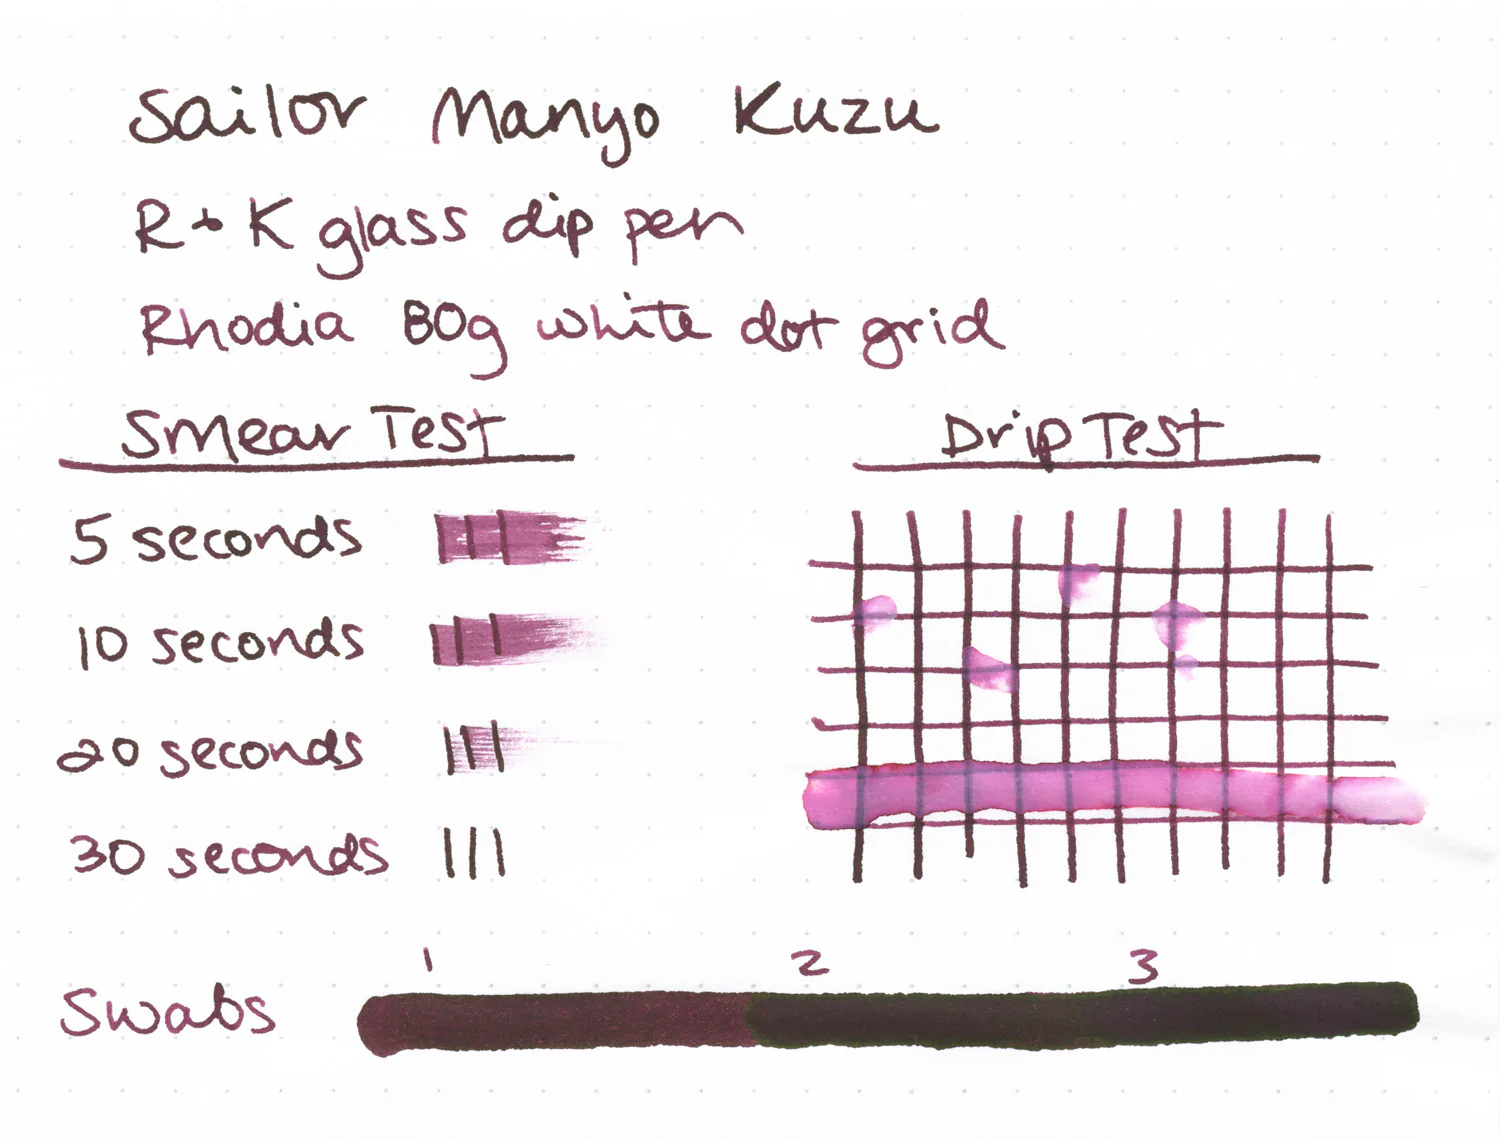 Sailor Manyo Kuzu
R + K glass dip pen
Rhodia 80g white dot grid
Smear Test
Drip Test
5 seconds
10 seconds
20 seconds
30 seconds
1 2 3
Swabs